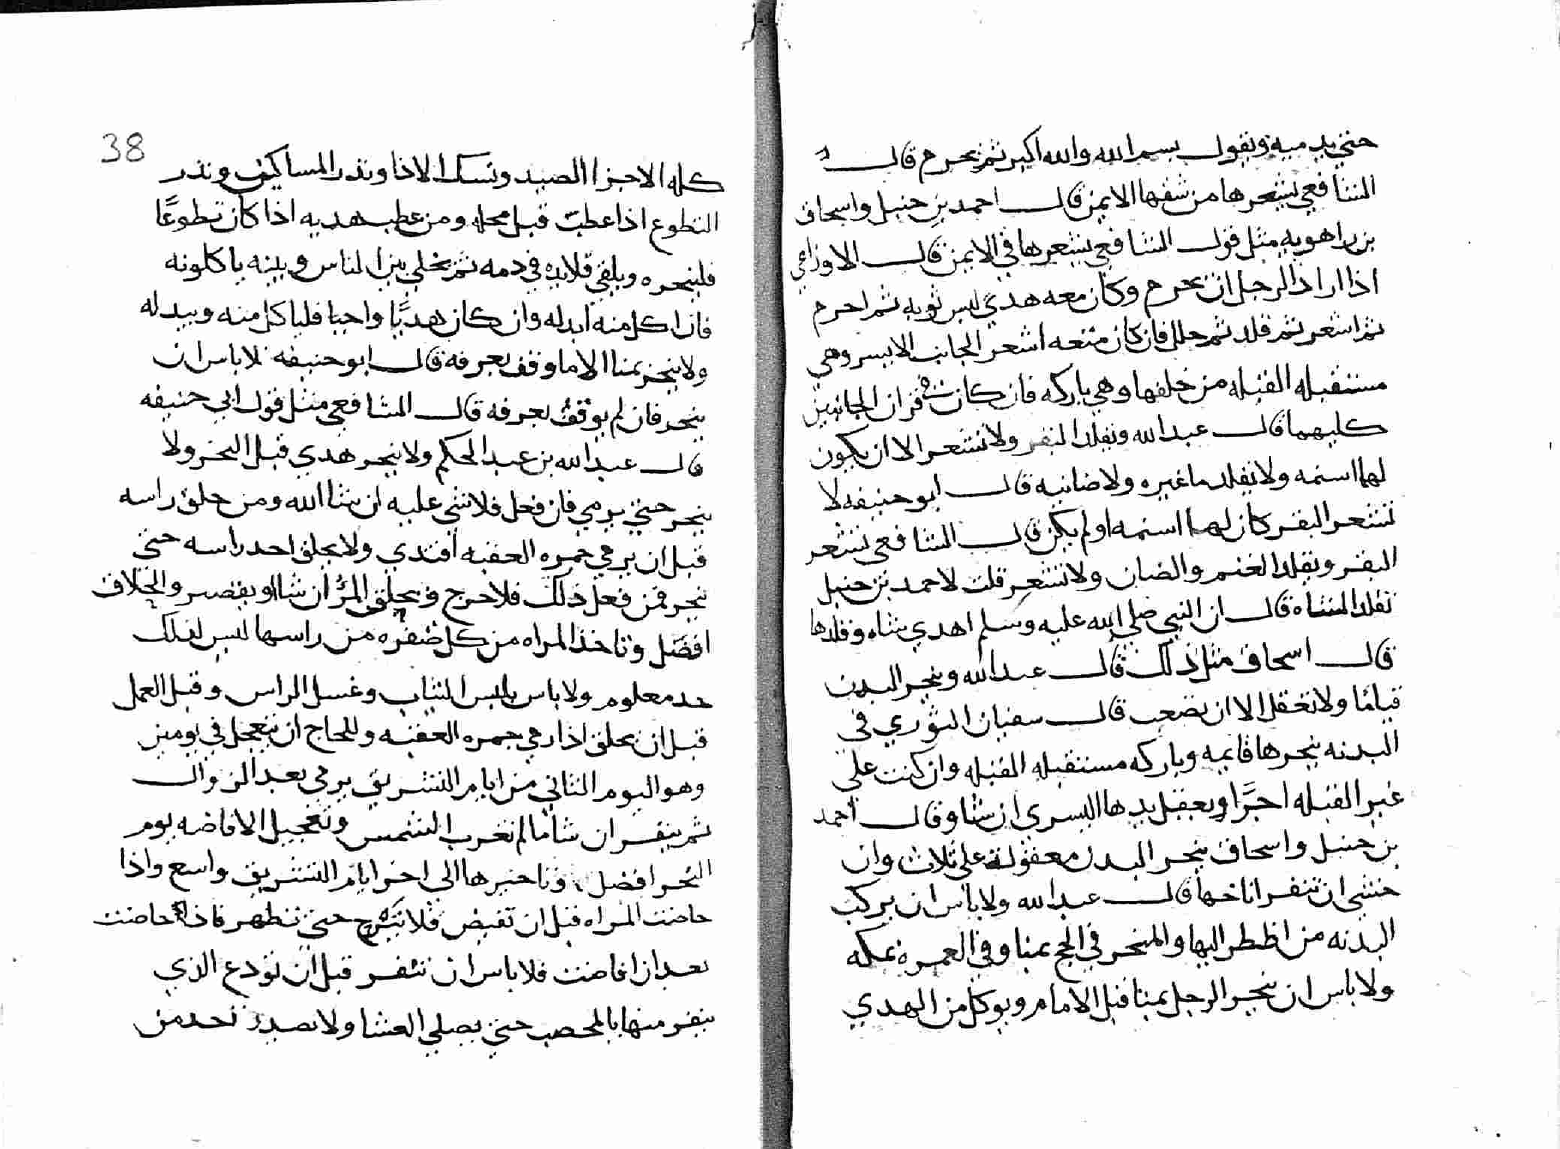 حتى يدميه ويقول بسم الله والله اكبر ثم يحرم قال
الشافعي يشعرها من شقها الايمن قال احمد بن حنبل واسحاق
بن راهويه مثل قول الشافعي يشعرها في الايمن قال الاوزاعي
اذا اراد الرجل ان يحرم وكان معه هدي لبس ثوبه ثم احرم
ثم اشعر ثم قلد ثم جلل فان كان متعه اشعر الجانب الايسر وهي
مستقبله القبله من خلفها وهي باركه فان كان في قران الجانبين
كليهما قال عبد الله وتقلد البقر ولا تشعر الا ان يكون
لها اسنمه ولا تقلد ما غيره ولا ضانيه قال ابو حنيفه لا
تشعر البقر كان لها اسنمه او لم يكن قال الشافعي تشعر
البقر وتقلد الغنم والضان ولا تشعر قلت لاحمد بن حنبل
تقلد الشاه قال ان النبي صلي الله عليه وسلم اهدي شاه وقلدها
قال اسحاق مثل ذلك قال عبد الله وينحر البدن
قياما ولا تعقل الا ان تصعب قال سفيان الثوري في
البدنه ينحرها قايمه وباركه مستقبله القبله وان كنت علي
غير القبله اجزا ويعقل يدها اليسرى ان شا وقال احمد
بن حنبل واسحاق ينحر البدن معقوله على ثلاث وان
خشي ان تنفر اناخها قال عبد الله ولا باس ان يركب
البدنه من اظطر اليها والمنحر في الحج بمنا وفي العمره بمكه
ولا باس ان ينحر الرجل بمنا قبل الامام ويوكل من الهدي
38
كله الا جزا الصيد ونسك الاذا ونذر المساكين ونذر
التطوع اذا عطبت قبل محله ومن عطب هديه اذا كان تطوعًا
فلينحره ويلقي قلايده في دمه ثم يخلي بين الناس وبينه ياكلونه
فان اكل منه ابدله وان كان هديًا واجبا فلياكل منه ويبدله
ولا ينحر بمنا الا ما وقف بعرفه قال ابو حنيفه لا باس ان
ينحر فان لم يوقف بعرفه قال الشافعي مثل قول ابي حنيفه
قال عبد الله بن عبد الحكم ولا ينحر هدي قبل الفجر ولا
ينحر حتي يرمي فان فعل فلا شي عليه ان شا الله ومن حلق راسه
قبل ان يرمي جمره العقبه افتدي ولا يحلق احد راسه حتي
ينحر فمن فعل ذلك فلا حرج ويحلق المرؤ ان شا او يقصر والحلاق
افضل وتاخذ المراه من كل ضفره من راسها ليس لذلك
حد معلوم ولا باس بلبس الثياب وغسل الراس وقبل العمل
قبل ان يحلق اذا رمي جمره العقبه وللحاج ان يتعجل في يومين
وهو اليوم الثاني من ايام التشريق يرمي بعد الزوال
ثم ينفر ان شا ما لم تغرب الشمس وتعجيل الافاضه يوم
النحر افضل وتاخيرها الى اخر ايام التشريق واسع واذا
حاضت المراه قبل ان تفيض فلا تبرح حتى تطهر فاذا حاضت
بعد ان افاضت فلا باس ان تنفر قبل ان تودع الذي
ينفر منها بالمحصب حتي يصلي العشا ولا يصدر احد من